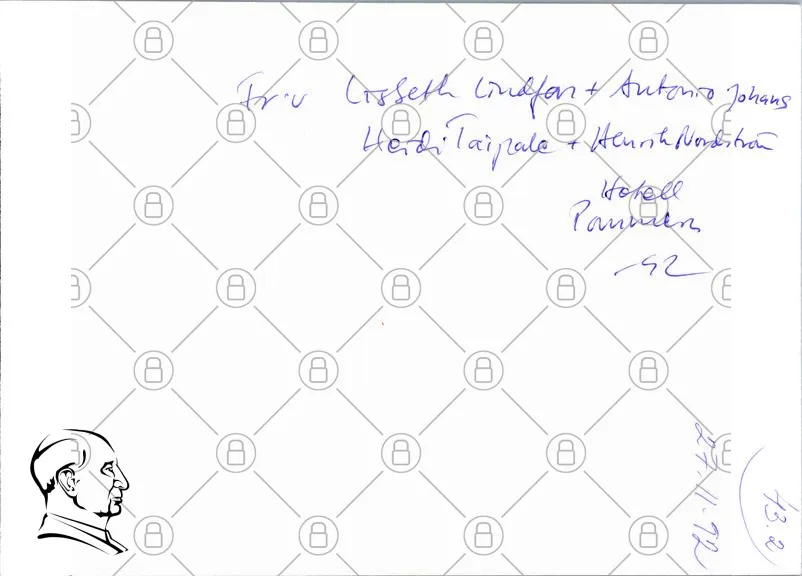 Fr.v Lisbeth Lindfors + Antonio Johans
Heidi Taipale + Henrik Nordström
Hotell
-92
27.11.92
13.2